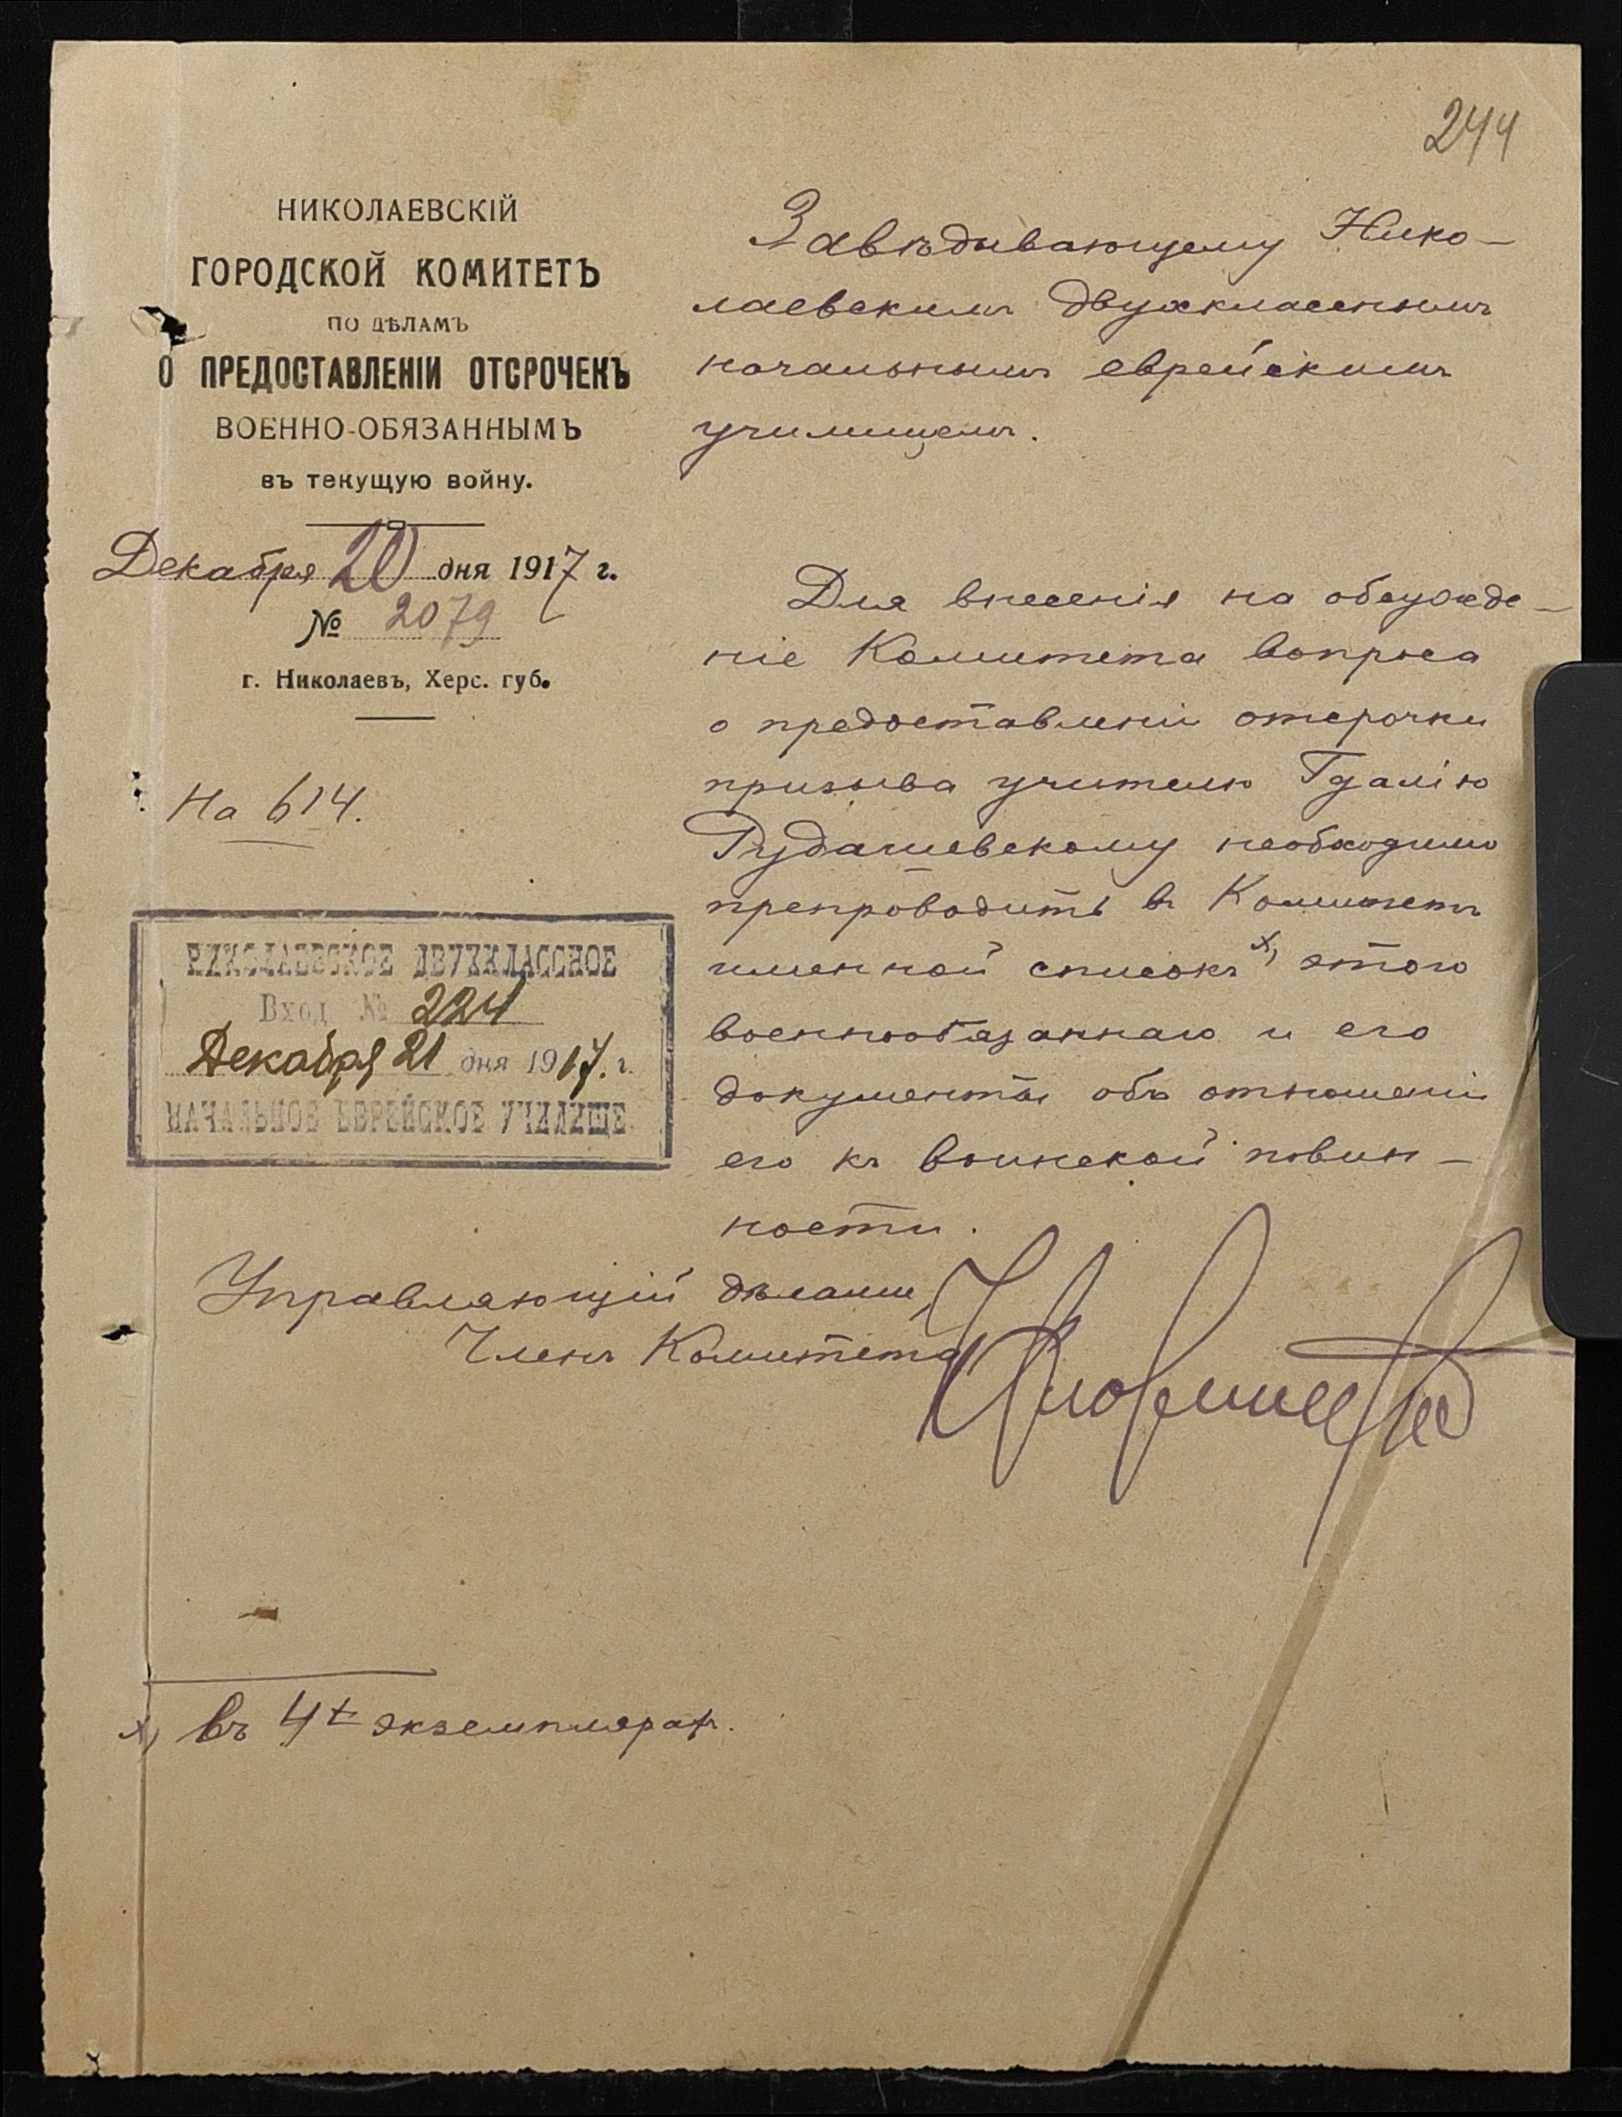 244
НИКОЛАЕВСКІЙ
ГОРОДСКОЙ КОМИТЕТЪ
ПО ДѢЛАМЪ
О ПРЕДОСТАВЛЕНІИ ОТСРОЧЕКЪ
ВОЕННО-ОБЯЗАННЫМЪ
въ текущую войну.
Декабря 20 дня 1917 г.
№ 2079
г. Николаевъ, Херс. губ.
На 614.
НИКОЛАЕВСКОЕ ДВУХКЛАССНОЕ
Вход № 224
Декабря 21 дня 1917. г.
НАЧАЛЬНОЕ ЕВРЕЙСКОЕ УЧИЛИЩЕ
Завѣдывающему Нико-
лаевскимъ двухкласснымъ
начальнымъ еврейскимъ
училищемъ.
Для внесенія на обсужде-
ніе Комитета вопроса
о предоставленіи отсрочки
призыва учителю Гдалію
Рудашевскому необходимо
препроводить въ Комитетъ
именной списокъ х) этого
военнообязаннаго и его
документы объ отношеніи
его къ воинской повин-
ности.
Управляющій дѣлами,
Членъ Комитета
х) въ 4х экземплярах.